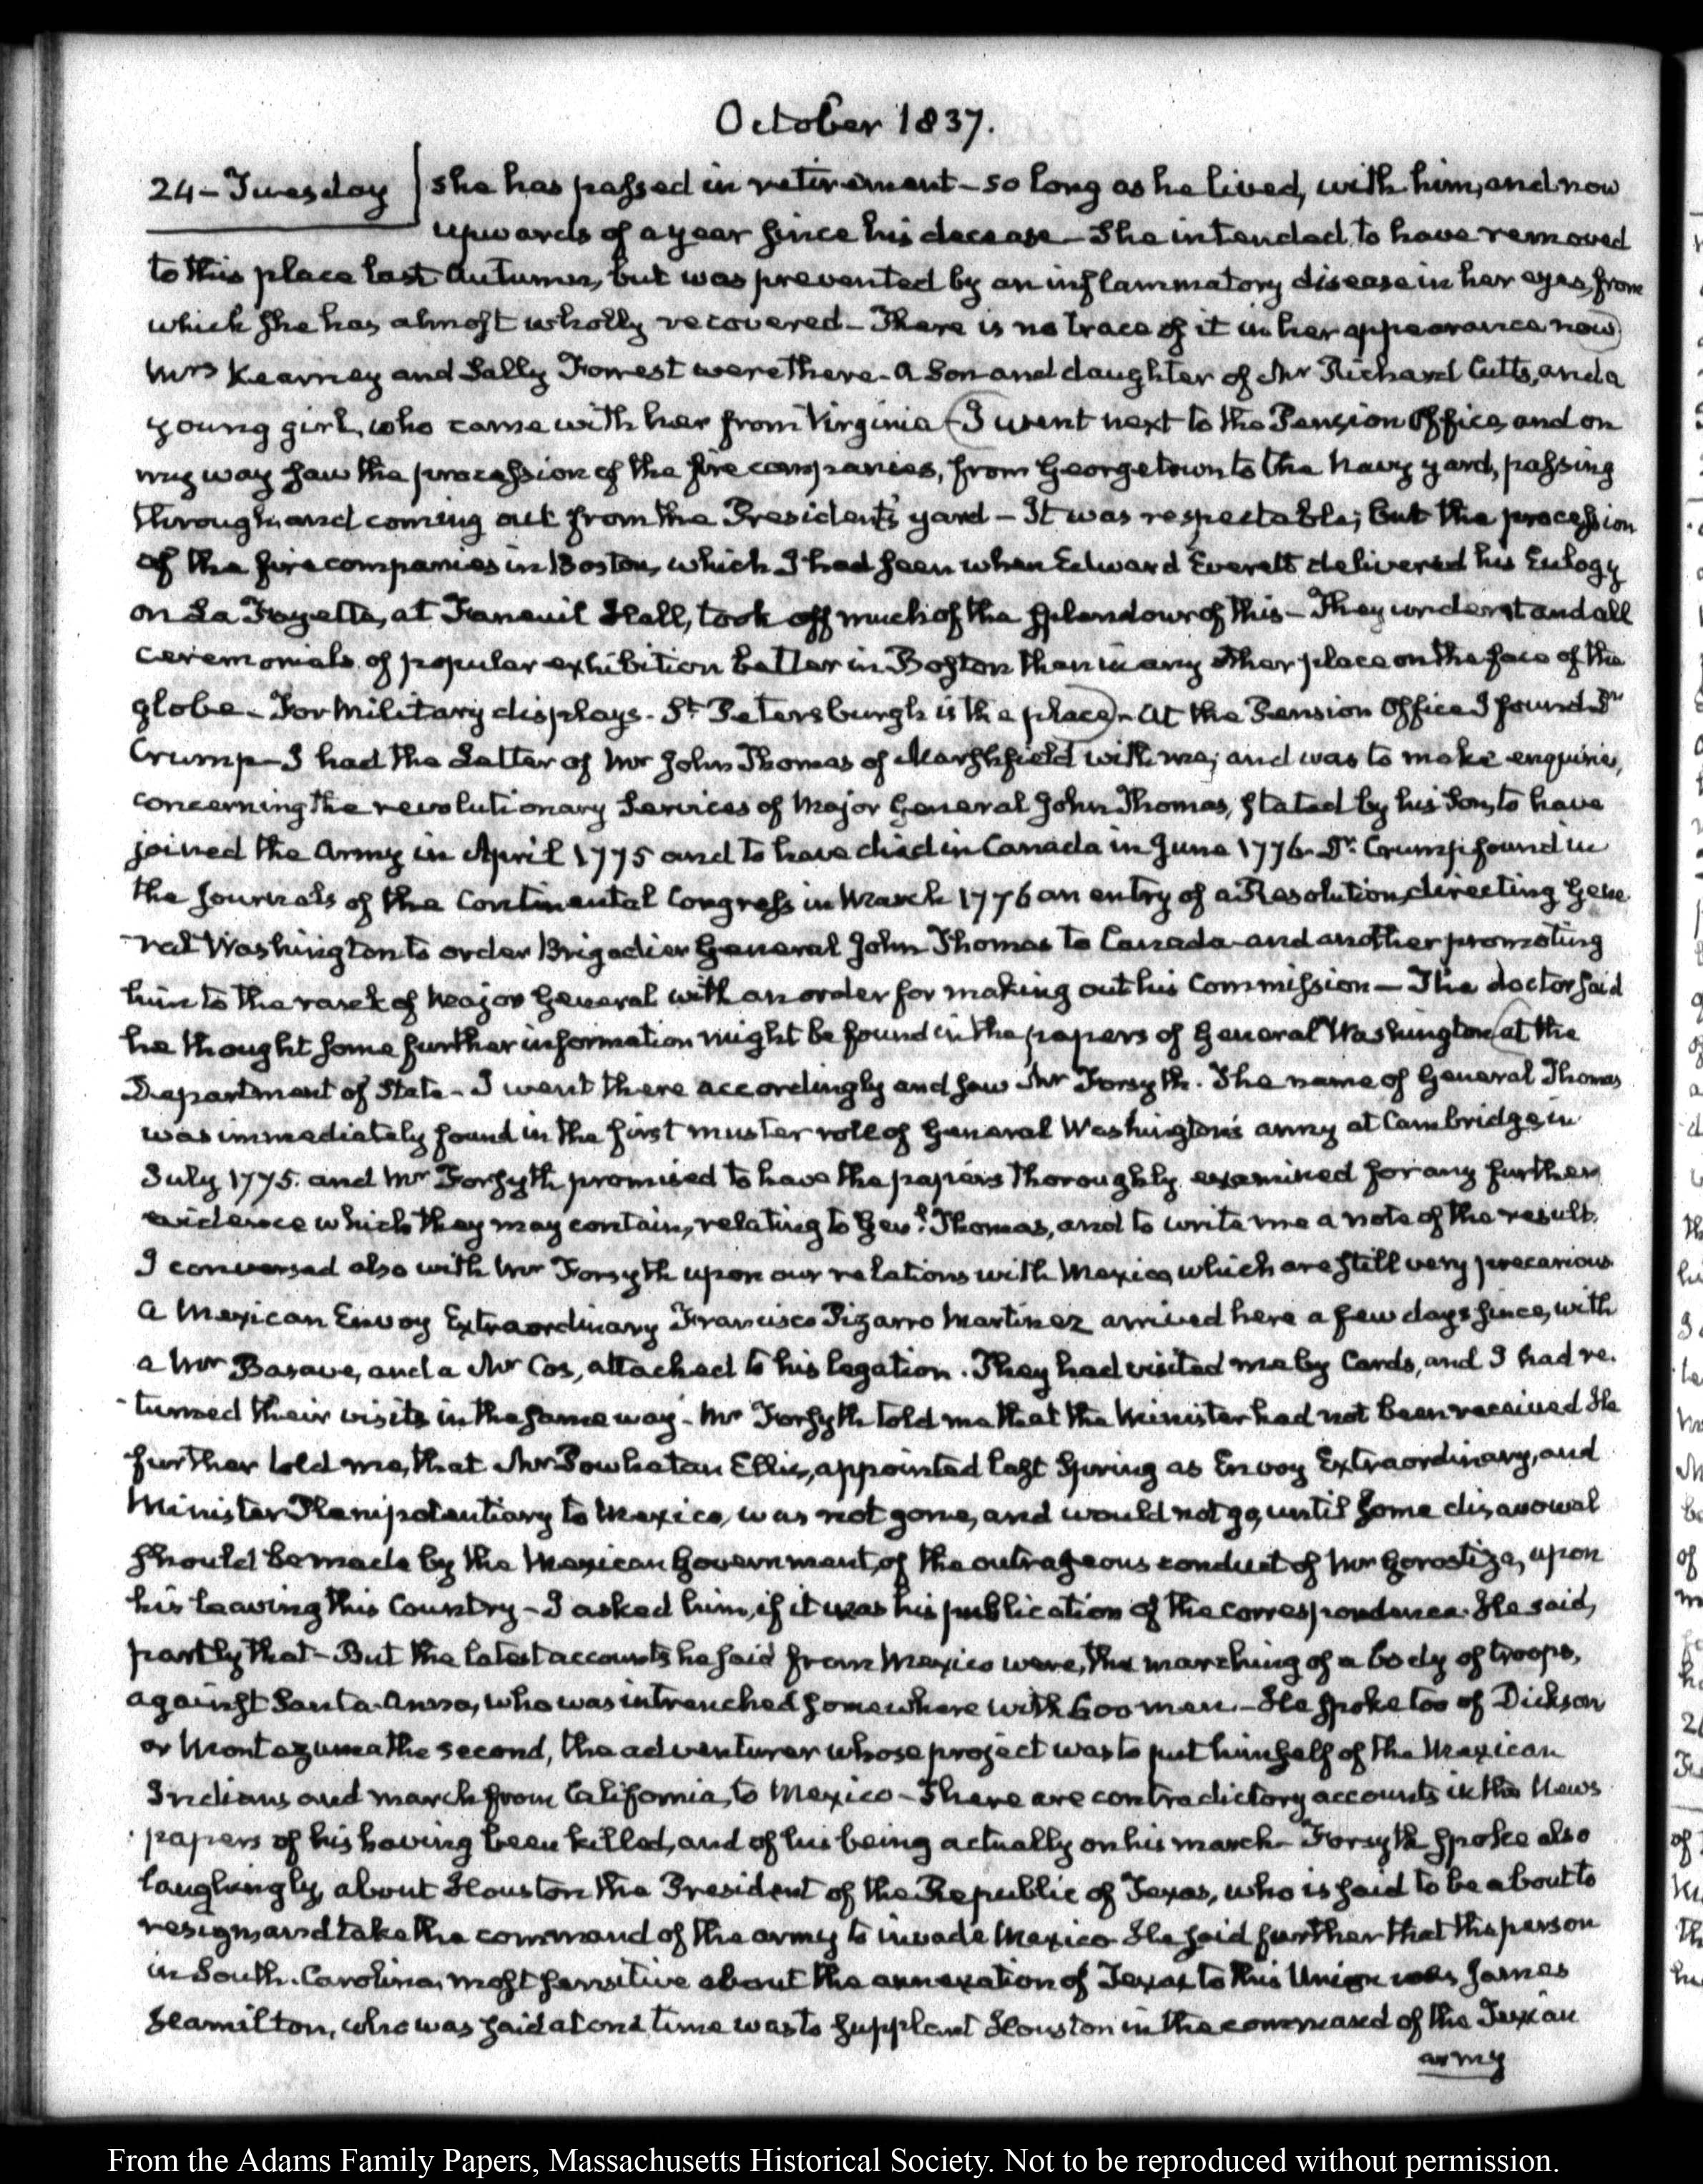 October 1837.
24 – Tuesday
she has passed in retirement – so long as he lived, with him, and now
upwards of a year since his decease – She intended to have removed
to this place last Autumn, but was prevented by an inflammatory disease in her eyes, from
which she has almost wholly recovered – There is no trace of it in her appearance now)
Mrs Kearney and Sally Forrest were there – A Son and daughter of Mr Richard Cutts, and a
young girl, who came with her from Virginia – (I went next to the Pension Office, and on
my way saw the procession of the fire companies, from Georgetown to the Navy yard, passing
through, and coming out from the President's yard – It was respectable; but the procession
of the fire companies in Boston, which I had seen when Edward Everett delivered his Eulogy
on La Fayette, at Faneuil Hall, took off much of the splendour of this – They understand all
ceremonials of popular exhibition better in Boston than in any other place on the face of the
globe – For Military displays – St Petersburgh is the place) – At the Pension Office I found Dr
Crump – I had the Letter of Mr John Thomas of Marshfield with me; and was to make enquiries,
concerning the revolutionary Services of Major General John Thomas, stated by his Son, to have
joined the Army in April 1775 and to have died in Canada in June 1776. Dr Crump found in
the Journals of the Continental Congress in March 1776 an entry of a Resolution, directing Gene
ral Washington to order Brigadier General John Thomas to Canada and another promoting
him to the rank of Major General with an order for making out his Commission – The doctor said
he thought some further information might be found in the papers of General Washington (at the
Department of State – I went there accordingly and saw Mr Forsyth. The name of General Thomas
was immediately found in the first muster roll of General Washington's army at Cambridge, in
July 1775. and Mr Forsyth promised to have the papers thoroughly examined for any further
evidence which they may contain, relating to Genl. Thomas, and to write me a note of the result.
I conversed also with Mr Forsyth upon our relations with Mexico, which are still very precarious
A Mexican Envoy Extraordinary Francisco Pizarro Martinez arrived here a few days since, with
a Mr Basave, and a Mr Cos, attached to his legation. They had visited me by Cards, and I had re.
turned their visits in the same way – Mr Forsyth told me that the Minister had not been received He
further told me, that Mr Powhatan Ellis, appointed last Spring as Envoy Extraordinary, and
Minister Plenipotentiary to Mexico, was not gone, and would not go, until some disavowal
should be made by the Mexican Government, of the outrageous conduct of Mr Gorostiza, upon
his leaving this Country – I asked him, if it was his publication of the correspondence. He said,
partly that – But the latest accounts he said from Mexico were, the marching of a body of troops,
against Santa-Anna, who was intrenched somewhere with 600 men – He spoke too of Dickson
or Montezuma the second, the adventurer whose project was to put himself of the Mexican
Indians and march from California, to Mexico – There are contradictory accounts in the News
papers of his having been killed, and of his being actually on his march – Forsyth spoke also
laughingly, about Houston the President of the Republic of Texas, who is said to be about to
resign and take the command of the army to invade Mexico He said further that the person
in South-Carolina, most sensitive about the annexation of Texas to this Union was James
Hamilton, who was said at one time was to supplant Houston in the command of the Texian
army
From the Adams Family Papers, Massachusetts Historical Society. Not to be reproduced without permission.